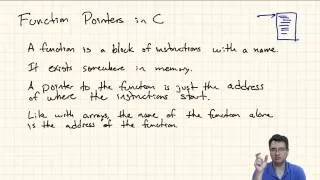 Function Pointers in C
A function is a block of instructions with a name.
It exists somewhere in memory.
A pointer to the function is just the address
of where the instructions start.
Like with arrays, the name of the function alone
is the address of the function.